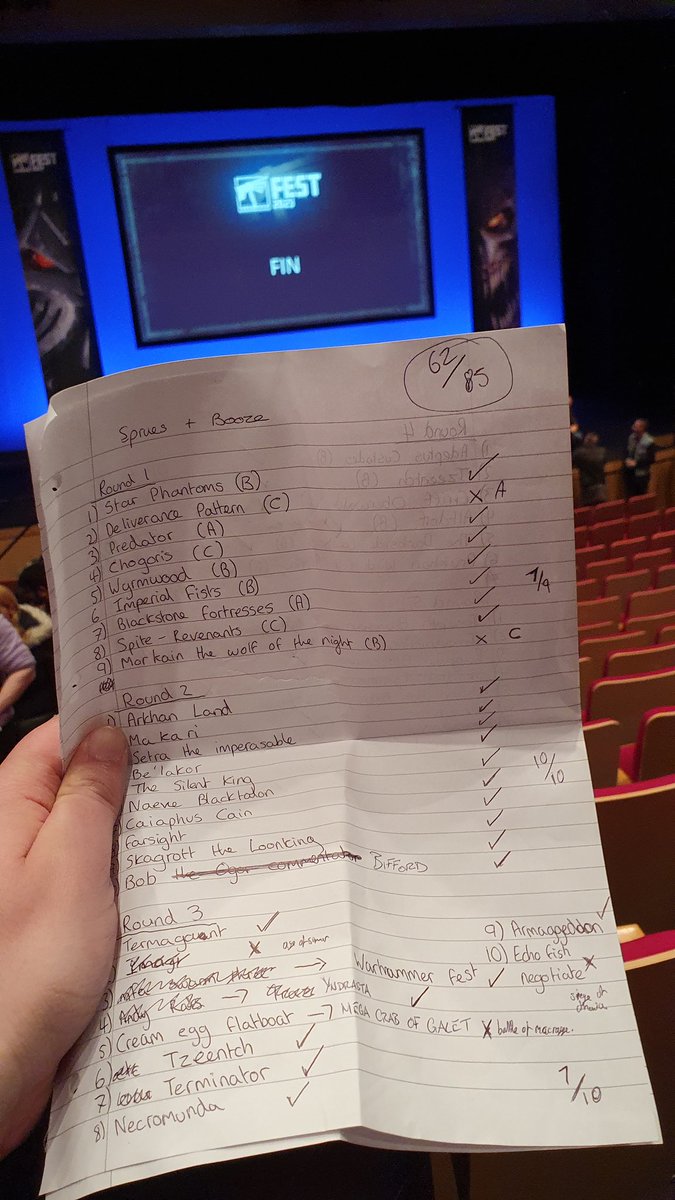 FEST
FEST
2023
FIN
FEST
62/85
Sprues + Booze
Round 4
Round 1
1) Star Phantoms (B) ✓
2) Deliverance Pattern (C) X A
3) Predator (A) ✓
4) Chogoris (C) ✓
5) Wyrmwood (B) ✓
6 Imperial Fists (B) ✓ 7/9
7) Blackstone Fortresses (A) ✓
8) Spite-Revenants (C) ✓
9) Markain the wolf of the night (B) X C
Round 2
1) Arkhan Land ✓
Makari ✓
Setra the imperasable ✓
Be'lakor ✓
The Silent King ✓ 10/10
Naeve Blacktalon ✓
Caiaphus Cain ✓
Farsight ✓
Skagrott the Loonking ✓
Bob the Ogor commentator BIFFORD ✓
Round 3
Termagaunt ✓
X age of sigmar
3) → Warhammer Fest ✓
4) Andy → YNDRASTA ✓
5) Cream egg flatboat → MEGA CRAB OF GALET X battle of macragge.
6) Tzeentch ✓
7) Terminator ✓
8) Necromunda ✓
9) Armageddon ✓
10) Echo fish
negotiate X
siege of
7/10